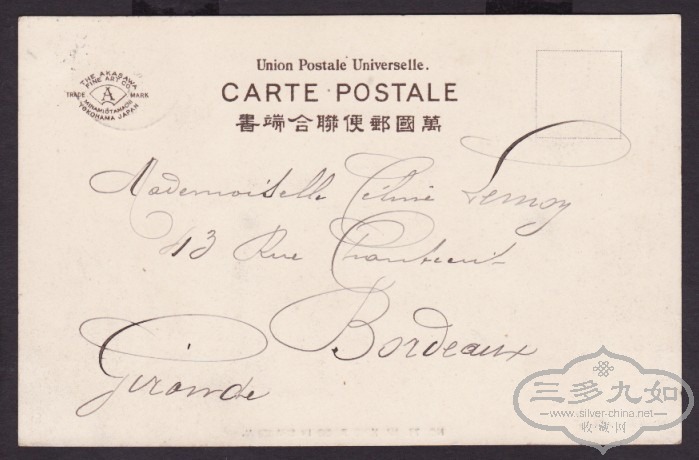 Union Postale Universelle.
CARTE POSTALE
萬國郵便聯合端書
THE AKASAWA
FINE ART CO.
TRADE MARK
A
YOKOHAMA JAPAN
Mademoiselle Céline
43 Rue
Bordeaux
Gironde
三多九如
www.silver-china.net
收藏网